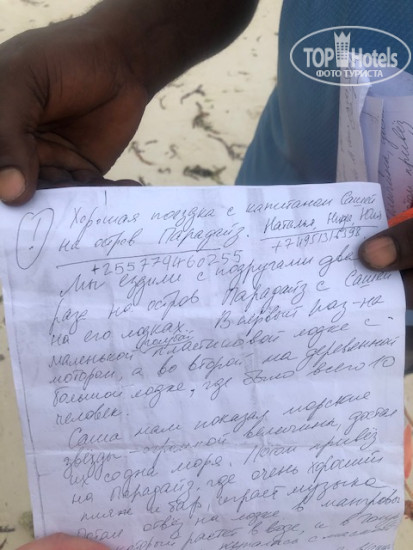 TOP Hotels
ФОТО ТУРИСТА
!
Хорошая поездка с капитаном Сашей
на остров Парадайз. Наталья, Нифа, Юлия
+255774460255
Мы ездили с подругами два
раза на остров Парадайз с Сашей
на его лодках. В первый раз - на
маленькой пластиковой лодке с
мотором, а во второй на деревянной
большой лодке, где было всего 10
человек.
Саша нам показал морские
звезды - огромной величины, достал
их со дна моря. Потом привёз
на Парадайз, где очень хороший
пляж и бар, играет музыка
на лодке в мангровы
который растёт в воде, и в